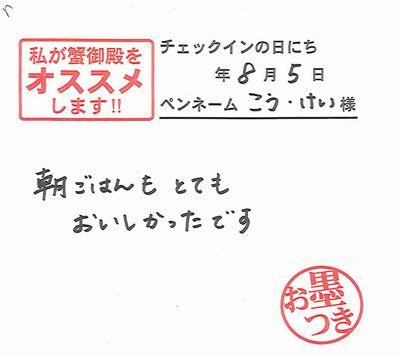 私が蟹御殿を
オススメ
します!!
チェックインの日にち
年 8 月 5 日
ペンネーム こう・けい 様
朝ごはんも とても
おいしかったです
お墨
つき